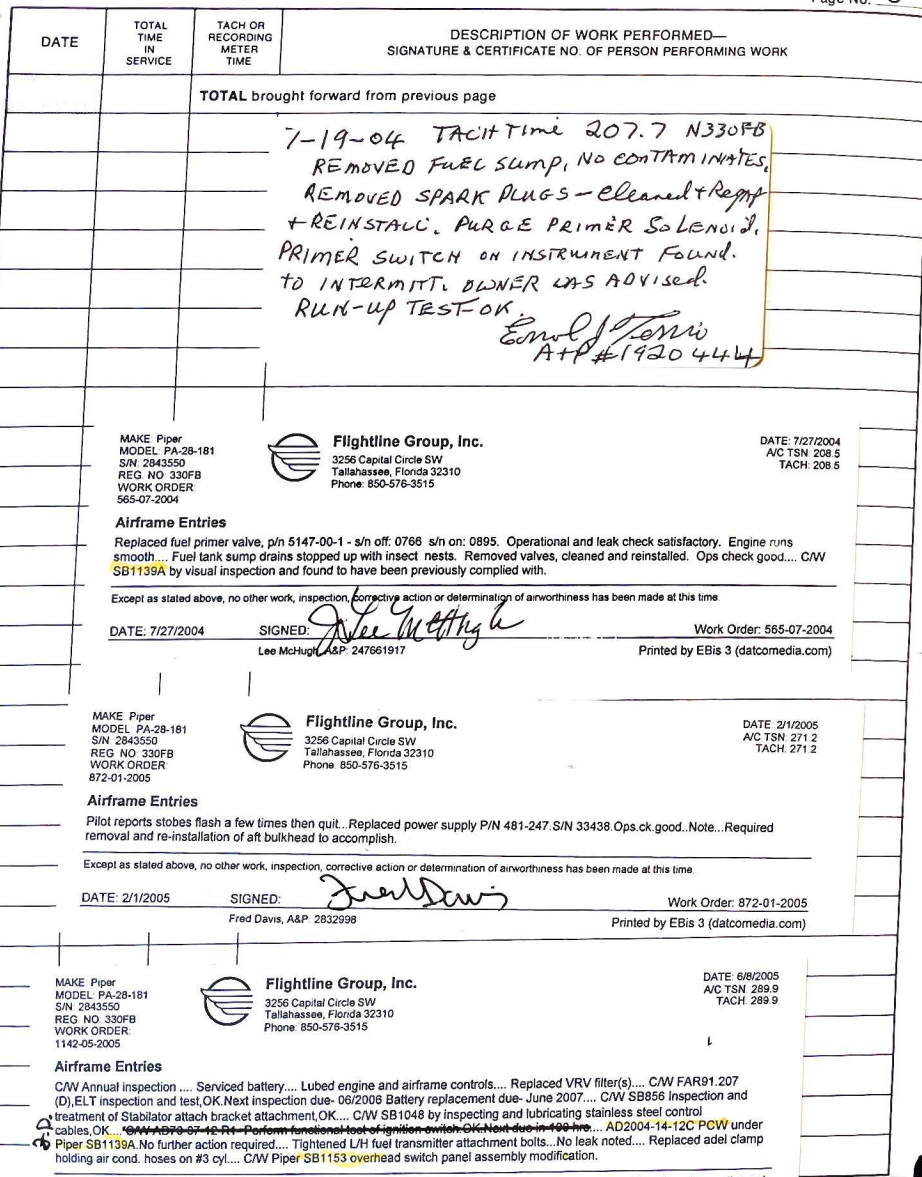 Page No.
DATE
TOTAL
TIME
IN
SERVICE
TACH OR
RECORDING
METER
TIME
DESCRIPTION OF WORK PERFORMED—
SIGNATURE & CERTIFICATE NO. OF PERSON PERFORMING WORK
TOTAL brought forward from previous page
7-19-04 TACH TIME 207.7 N330FB
REMOVED FUEL SUMP, NO CONTAMINATES,
REMOVED SPARK PLUGS – Cleaned + Regap
+ REINSTALL. PURGE PRIMER SOLENOID,
PRIMER SWITCH ON INSTRUMENT FOUND.
TO INTERMITT. OWNER WAS ADVISED.
RUN-UP TEST-OK.
A+P #1920444
MAKE: Piper
MODEL: PA-28-181
S/N: 2843550
REG NO: 330FB
WORK ORDER:
565-07-2004
Flightline Group, Inc.
3256 Capital Circle SW
Tallahassee, Florida 32310
Phone: 850-576-3515
DATE: 7/27/2004
A/C TSN: 208.5
TACH: 208.5
Airframe Entries
Replaced fuel primer valve, p/n 5147-00-1 - s/n off: 0766 s/n on: 0895. Operational and leak check satisfactory. Engine runs
smooth.... Fuel tank sump drains stopped up with insect nests. Removed valves, cleaned and reinstalled. Ops check good.... C/W
SB1139A by visual inspection and found to have been previously complied with.
Except as stated above, no other work, inspection, corrective action or determination of airworthiness has been made at this time.
DATE: 7/27/2004 SIGNED: J Lee McHugh Work Order: 565-07-2004
Lee McHugh, A&P: 247661917 Printed by EBis 3 (datcomedia.com)
MAKE: Piper
MODEL: PA-28-181
S/N: 2843550
REG NO: 330FB
WORK ORDER:
872-01-2005
Flightline Group, Inc.
3256 Capital Circle SW
Tallahassee, Florida 32310
Phone: 850-576-3515
DATE: 2/1/2005
A/C TSN: 271.2
TACH: 271.2
Airframe Entries
Pilot reports stobes flash a few times then quit...Replaced power supply P/N 481-247.S/N 33438.Ops.ck.good..Note...Required
removal and re-installation of aft bulkhead to accomplish.
Except as stated above, no other work, inspection, corrective action or determination of airworthiness has been made at this time.
DATE: 2/1/2005 SIGNED: Fred Davis Work Order: 872-01-2005
Fred Davis, A&P: 2832998 Printed by EBis 3 (datcomedia.com)
MAKE: Piper
MODEL: PA-28-181
S/N: 2843550
REG NO: 330FB
WORK ORDER:
1142-05-2005
Flightline Group, Inc.
3256 Capital Circle SW
Tallahassee, Florida 32310
Phone: 850-576-3515
DATE: 6/8/2005
A/C TSN: 289.9
TACH: 289.9
Airframe Entries
C/W Annual inspection .... Serviced battery.... Lubed engine and airframe controls.... Replaced VRV filter(s).... C/W FAR91.207
(D),ELT inspection and test,OK.Next inspection due- 06/2006 Battery replacement due- June 2007.... C/W SB856 Inspection and
treatment of Stabilator attach bracket attachment,OK.... C/W SB1048 by inspecting and lubricating stainless steel control
cables,OK.... C/W AD76-07-12 R1- Perform functional test of ignition switch.OK.Next due in 100 hrs.... AD2004-14-12C PCW under
Piper SB1139A.No further action required.... Tightened L/H fuel transmitter attachment bolts...No leak noted.... Replaced adel clamp
holding air cond. hoses on #3 cyl.... C/W Piper SB1153 overhead switch panel assembly modification.